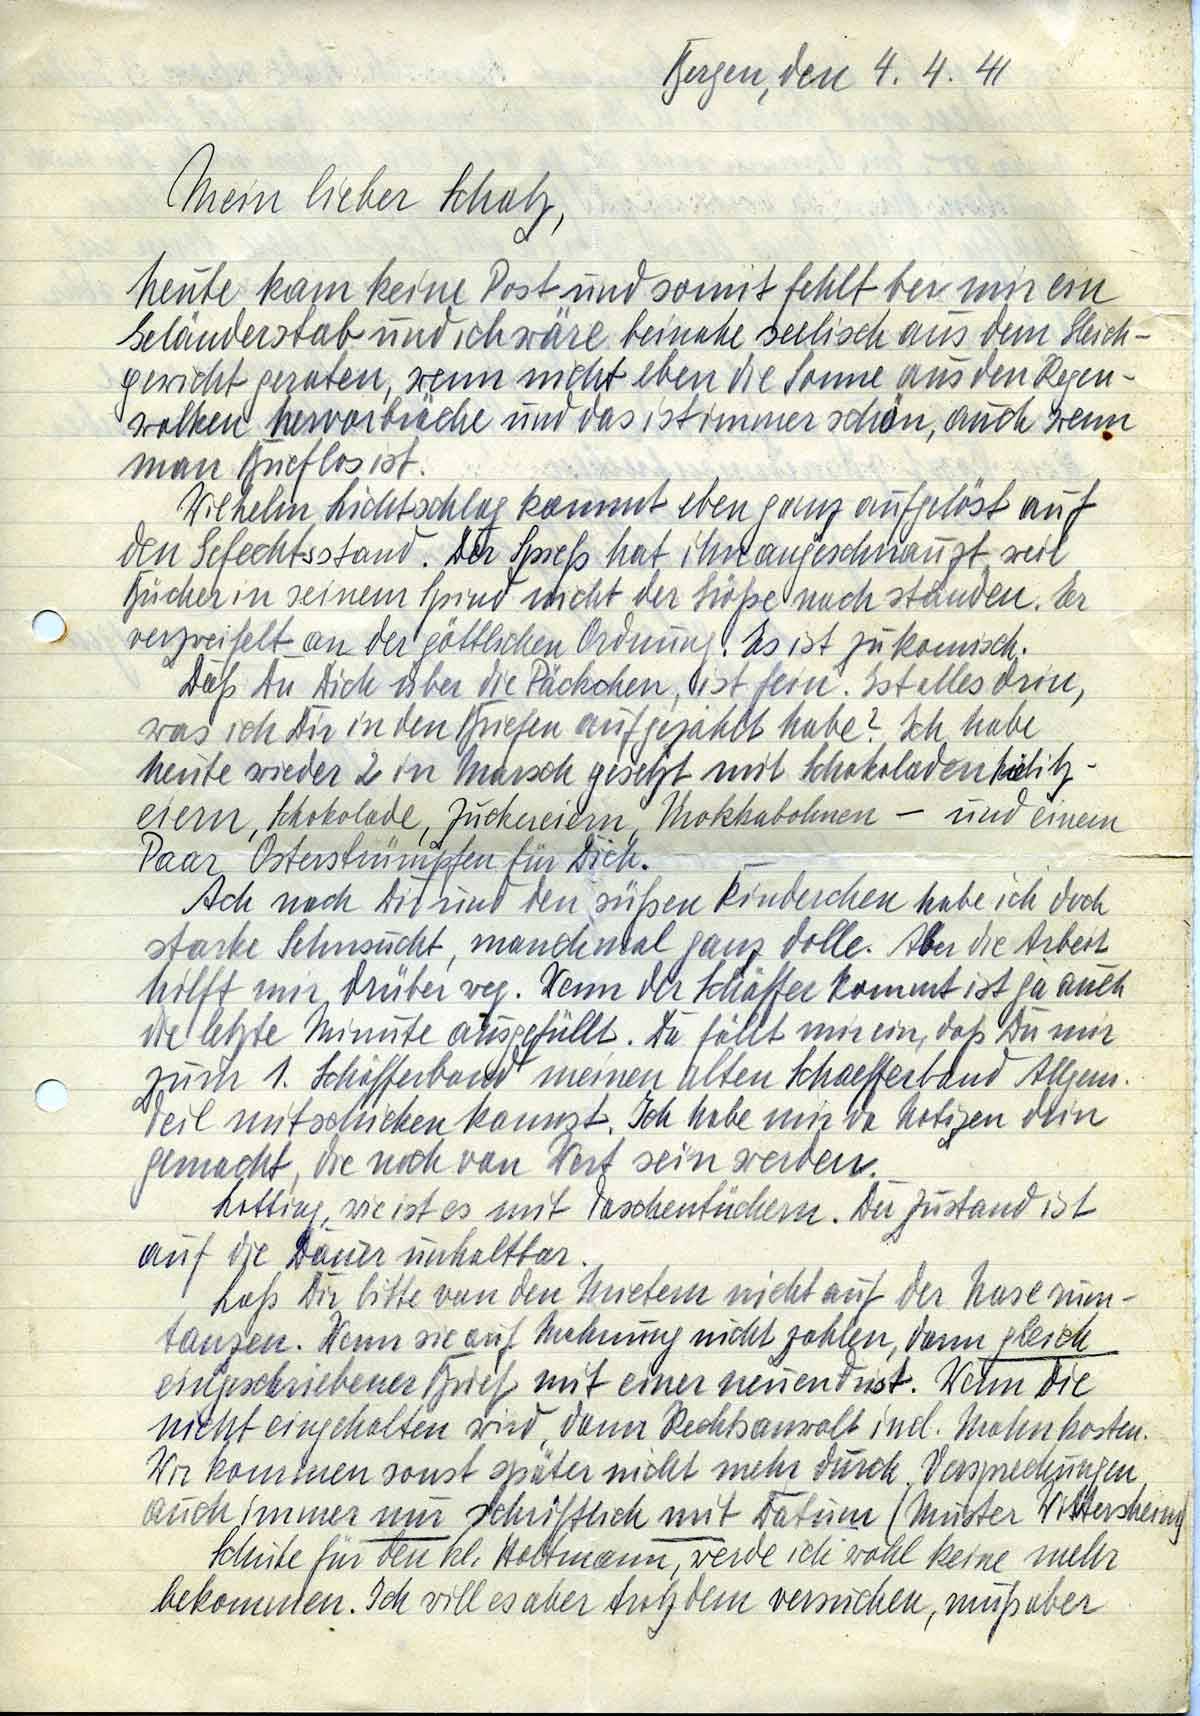 Bergen, den 4. 4. 41
Mein lieber Schatz,
heute kam keine Post und somit fehlt bei mir ein
Geländerstab und ich wäre beinahe seelisch aus dem Gleich-
gewicht geraten, wenn nicht eben die Sonne aus den Regen-
wolken hervorbräche und das ist immer schön, auch wenn
man Brieflos ist.
Wilhelm Lichtschlag kommt eben ganz aufgelöst auf
den Gefechtsstand. Der Spieß hat ihn angeschnauzt, weil
Bücher in seinem Spind nicht der Größe nach standen. Er
verzweifelt an der göttlichen Ordnung. Es ist zu komisch.
Daß Du Dich über die Päckchen, ist fein. Ist alles drin,
was ich Dir in den Briefen aufgezählt habe? Ich habe
heute wieder 2 in Marsch gesetzt mit Schokoladen
eiern, Schokolade, Zuckereiern, Mokkabohnen — und einem
Paar Osterstrümpfen für Dich.
Ach nach Dir und den süßen Kinderchen habe ich doch
starke Sehnsucht, manchmal ganz dolle. Aber die Arbeit
hilft mir drüber weg. Wenn der Schäffer kommt ist ja auch
die letzte Minute ausgefüllt. Da fällt mir ein, daß Du mir
zum 1. Schäfferband meinen alten Schaefferband Allgem.
Teil mitschicken kannst. Ich habe mir da Notizen drin
gemacht, die noch von Wert sein werden.
Lotting, wie ist es mit Taschentüchern. Der Zustand ist
auf die Dauer unhaltbar.
Laß Dir bitte von den Mietern nicht auf der Nase rum-
tanzen. Wenn sie auf Mahnung nicht zahlen, dann gleich
eingeschriebener Brief mit einer neuen Frist. Wenn die
nicht eingehalten wird, dann Rechtsanwalt incl. Mahnkosten.
Wir kommen sonst später nicht mehr durch. Versprechungen
auch immer nur schriftlich mit Datum (Muster Wittersheim)
Schuhe für den kl. Holtmann, werde ich wohl keine mehr
bekommen. Ich will es aber trotzdem versuchen, muß aber